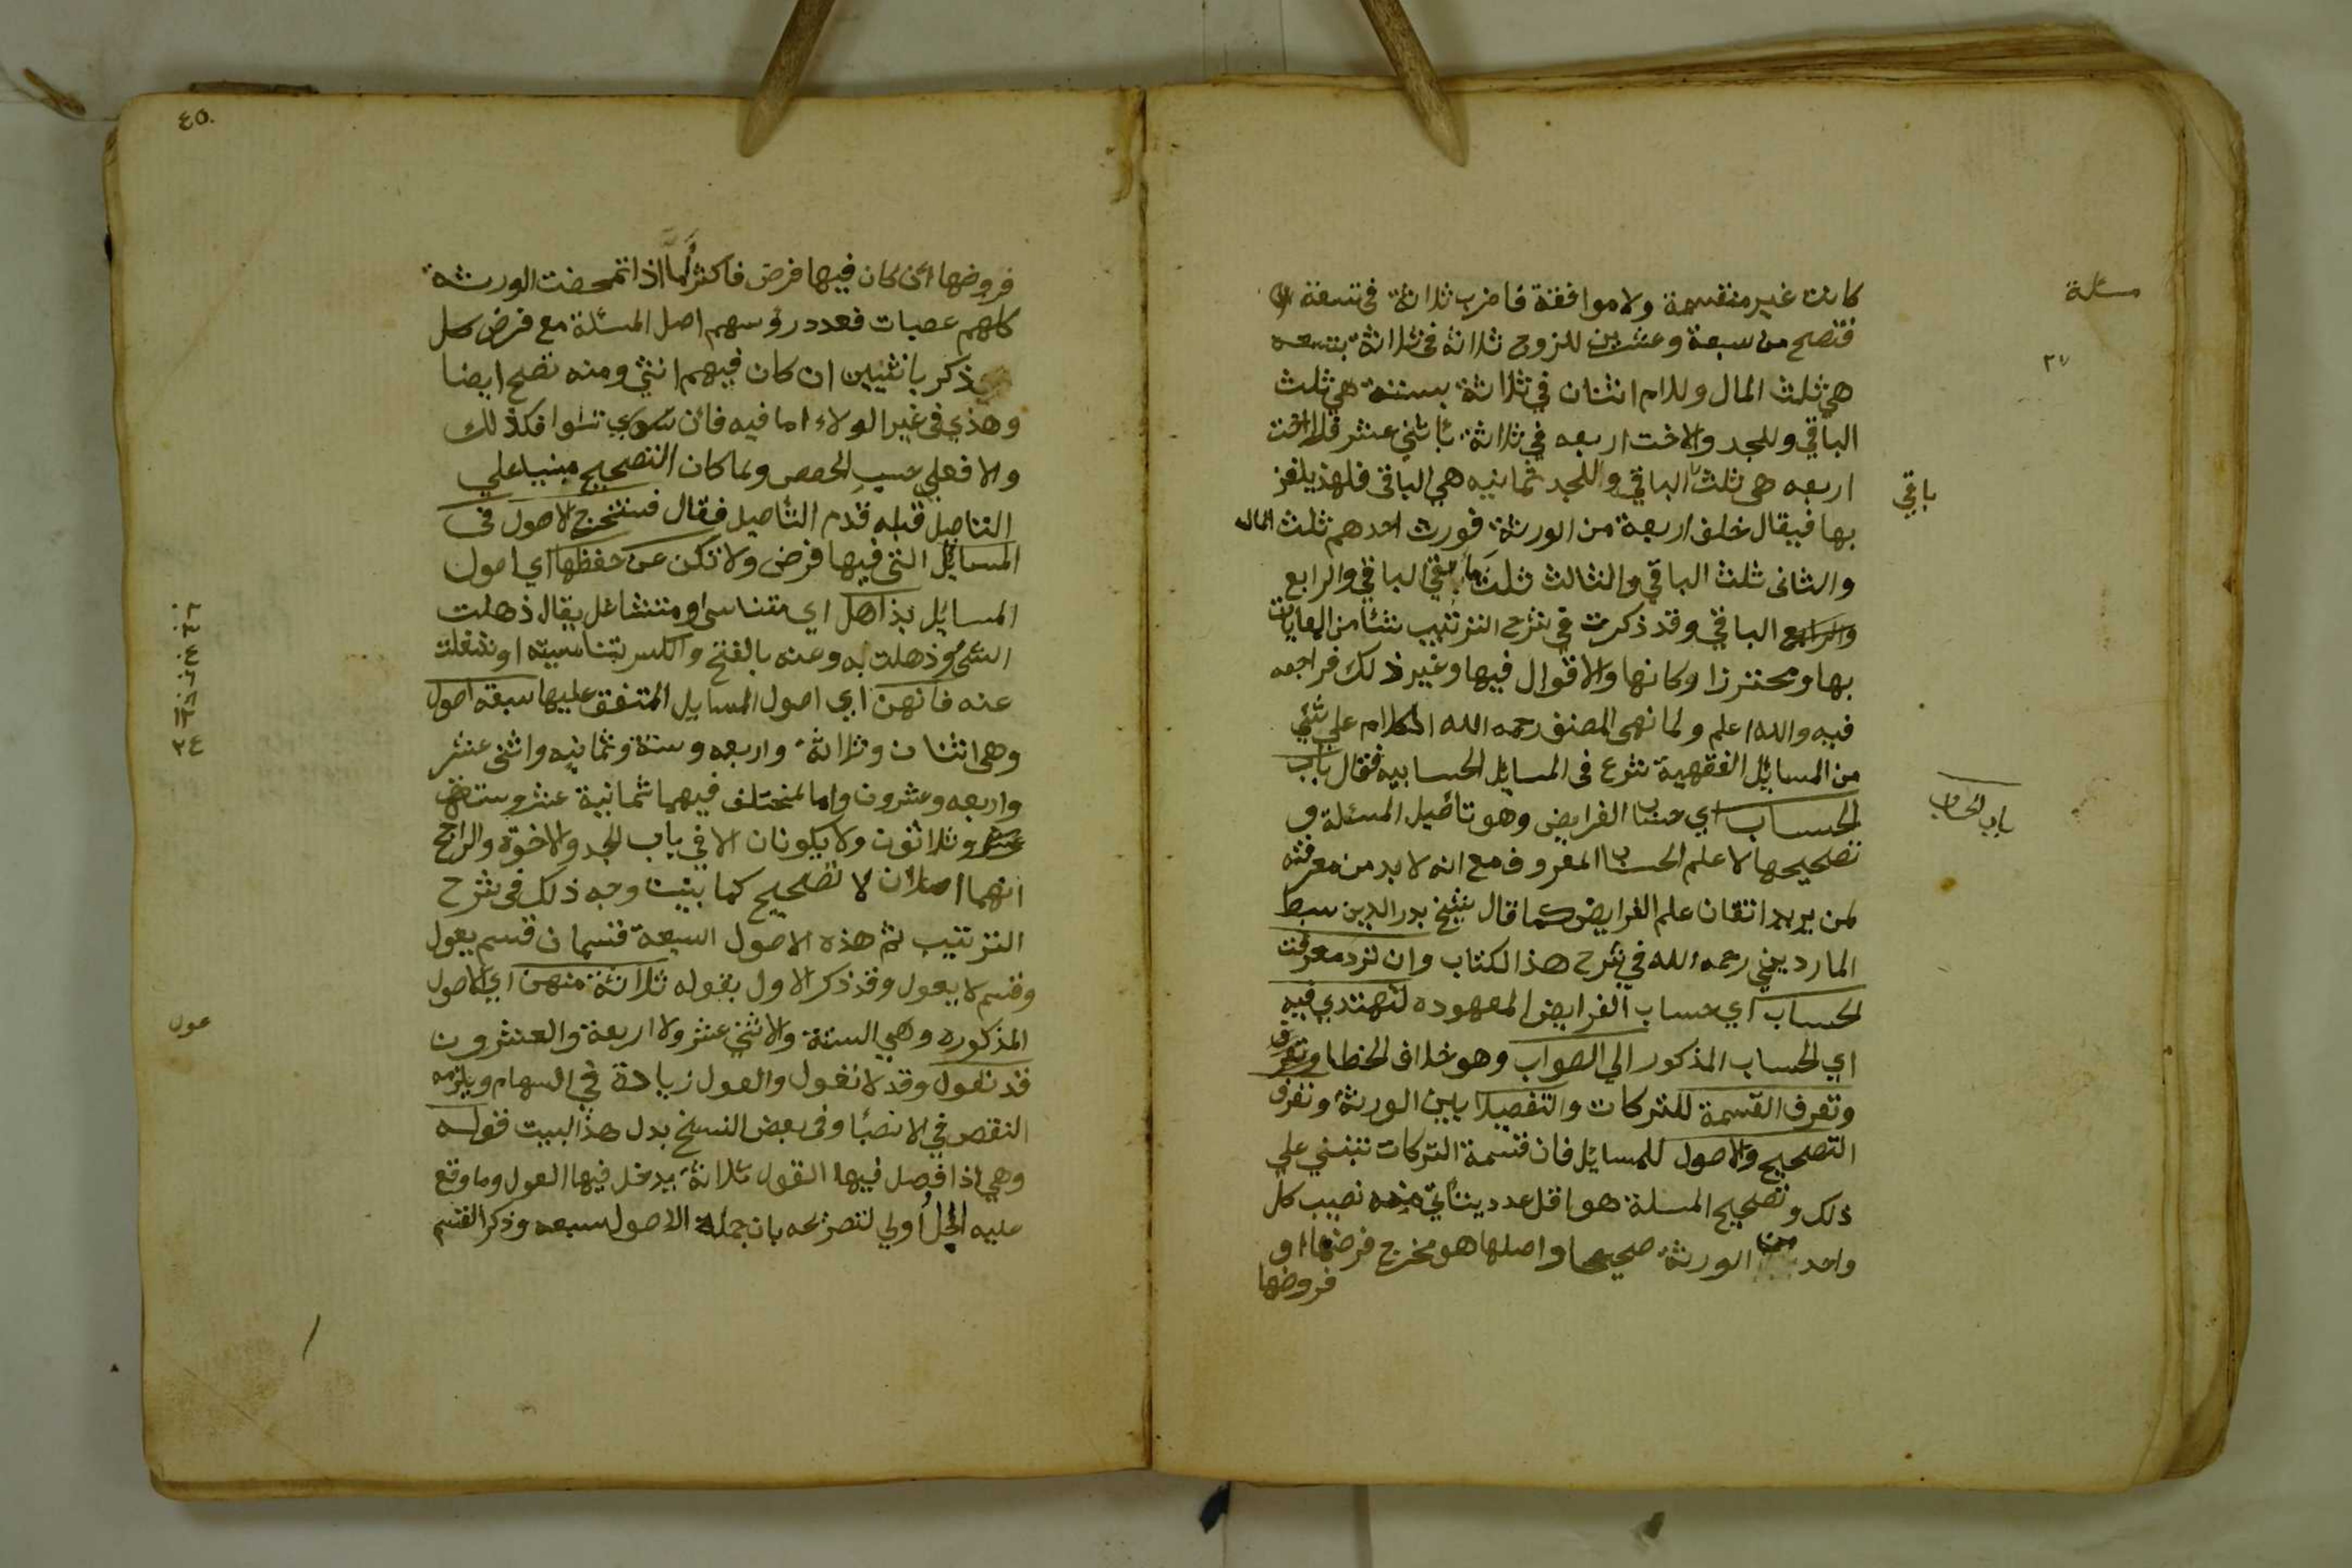 مسئلة
كانت غير منقسمة ولا موافقة فاضرب ثلاثة في تسعة
٢٧
فتصح من سبعة وعشرين للزوج ثلاثة في ثلاثة بتسعه
هي ثلث المال وللام اثنان في ثلاثة بستة هي ثلث
الباقي وللجد والاخت اربعه في ثلاثة باثني عشر فللاخت
اربعه هي ثلث الباقي وللجد ثمانيه هي الباقي فلهذ يلغز
باقي
بها فيقال خلف اربعة من الورثة فورث احدهم ثلث المال
والثاني ثلث الباقي والثالث ثلث ما بقي الباقي والرابع
والرابع الباقي وقد ذكرت في شرح الترتيب شئا من المعايات
بها ومحترزا ركانها والاقوال فيها وغير ذلك فراجعه
فيه والله اعلم ولما نهى المصنف رحمه الله الكلام على شئي
من المسايل الفقهية شرع في المسايل الحسابيه فقال باب
باب الحساب
الحساب اي حساب الفرايض وهو تأصيل المسئلة و
تصحيحها لا علم الحساب المعروف مع انه لا بد من معرفته
لمن يريد اتقان علم الفرايض كما قال شيخ بدر الدين سبط
المارديني رحمه الله في شرح هذ الكتاب وان ترد معرفت
الحساب اي حساب الفرايض المعهوده لتهتدي فيه
اي الحساب المذكور الي الصواب وهو خلاف الخطا وتعرف
وتعرف القسمة للتركات والتفصيلا بين الورثة وتعرف
التصحيح والاصول للمسايل فان قسمة التركات تنبني علي
ذلك وتصحيح المسلة هو اقل عدد يتأتي منه نصيب كل
واحد من الورثة صحيحا واصلها هو مخرج فرضها او
فروضها
٤٥
فروضها ان كان فيها فرض فاكثر اما اذا تمحضت الورثة
كلهم عصبات فعدد رؤسهم اصل المسئلة مع فرض كل
ذكر بانثيين ان كان فيهم انثي ومنه تصح ايضا
وهذي في غير الولاء اما فيه فان تسووا فكذلك
والا فعلي حسب الحصص ولما كان التصحيح مبنيا علي
التاصيل قبله قدم التأصيل فقال فستخرج الاصول في
المسايل التي فيها فرض ولا تكن عن حفظها اي اصول
المسايل بذاهل اي متناسي او متشاغل يقال ذهلت
الشئ وذهلت به وعنه بالفتح والكسر تناسيته او شغلت
عنه فانهن اي اصول المسايل المتفق عليها سبعة اصول
وهي اثنان وثلاثة واربعه وستة وثمانيه واثني عشر
واربعه وعشرون واما المختلف فيهما ثمانية عشر وستة
وثلاثون ولا يكونان الا في باب الجد والاخوة والراجح
انهما اصلان لا تصحيح كما بينت وجه ذلك في شرح
الترتيب ثم هذه الاصول السبعة قسمان قسم يعول
وقسم لا يعول وقد ذكر الاول بقوله ثلاثة منهن اي الاصول
المذكوره وهي الستة والاثني عشر ولا اربعة والعشرون
عول
قد تعول وقد لا تعول والعول زيادة في السهام ويلزمه
النقص في الانصبا وفي بعض النسخ بدل هذ البيت قوله
وهي اذا فصل فيها القول ثلاثة يدخل فيها العول وما وقع
عليه الحل اولي لتصريحه بان جملة الاصول سبعه وذكر القسم
٢
٣
٤
٦
٨
١٢
٢٤